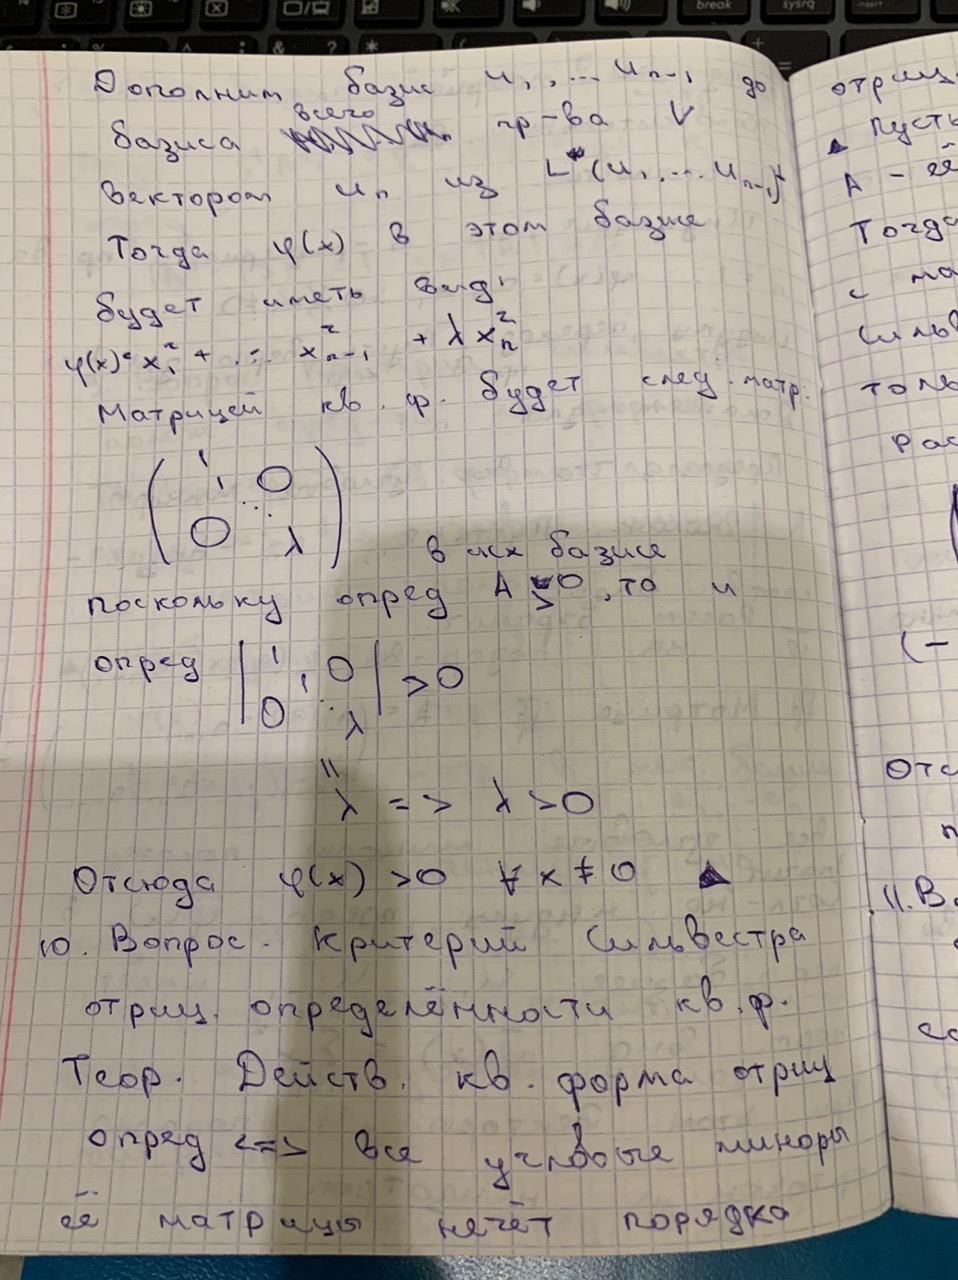 Дополним базис u₁, ... uₙ₋₁ до
всего
базиса пр-ва V
вектором uₙ из L*(u₁, ... uₙ₋₁)⊥
Тогда φ(x) в этом базисе
будет иметь вид:
φ(x) = x₁² + ... x²ₙ₋₁ + λxₙ²
Матрицей кв. ф. будет след. матр:
( 1
1 0
⋱
0 λ )
в исх базисе
поскольку опред A > 0, то и
опред | 1
1 0
⋱
0 λ | > 0
||
λ => λ > 0
Отсюда φ(x) > 0 ∀ x ≠ 0 ▲
10. Вопрос. Критерий Сильвестра
отриц. определённости кв. ф.
Теор. Действ. кв. форма отриц
опред <=> все угловые миноры
её матрицы нечёт порядка
отриц
▲ Пусть
A - её
Тогда
с ма
Сильв
толь
Рас
(-
Отс
11. В